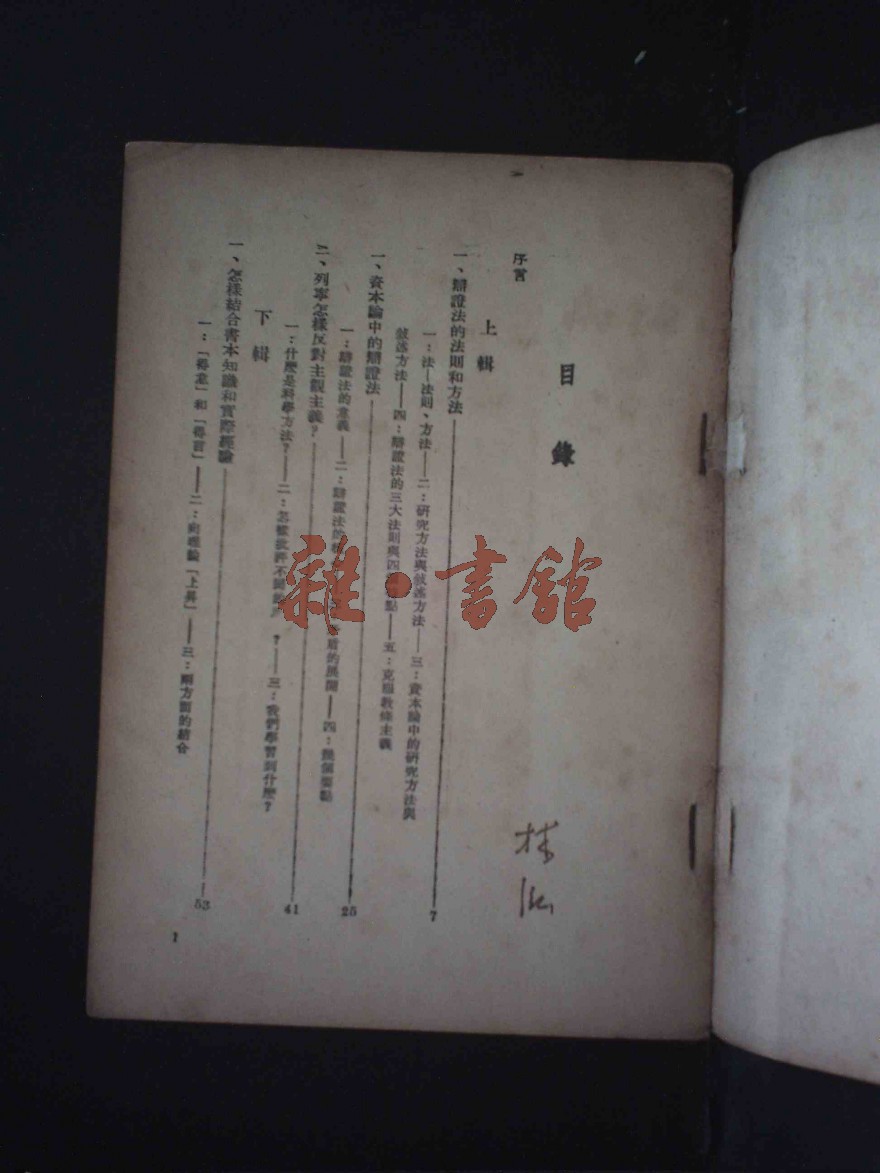 目錄
序言
上輯
一、辯證法的法則和方法 7
一：法—法則、方法——二：研究方法與敍述方法——三：資本論中的研究方法與
敍述方法——四：辯證法的三大法則與四 點——五：克服教條主義
一、資本論中的辯證法 25
一：辯證法的意義——二：辯證法的 盾的展開——四：幾個要點
二、列寧怎樣反對主觀主義？ 41
一：什麼是科學方法？——二：怎樣批評不 ？——三：我們學習到什麼？
下輯
一、怎樣結合書本知識和實際經驗 53
一：「得意」和「得言」——二：向理論「上昇」——三：兩方面的結合
1
雜·書舘